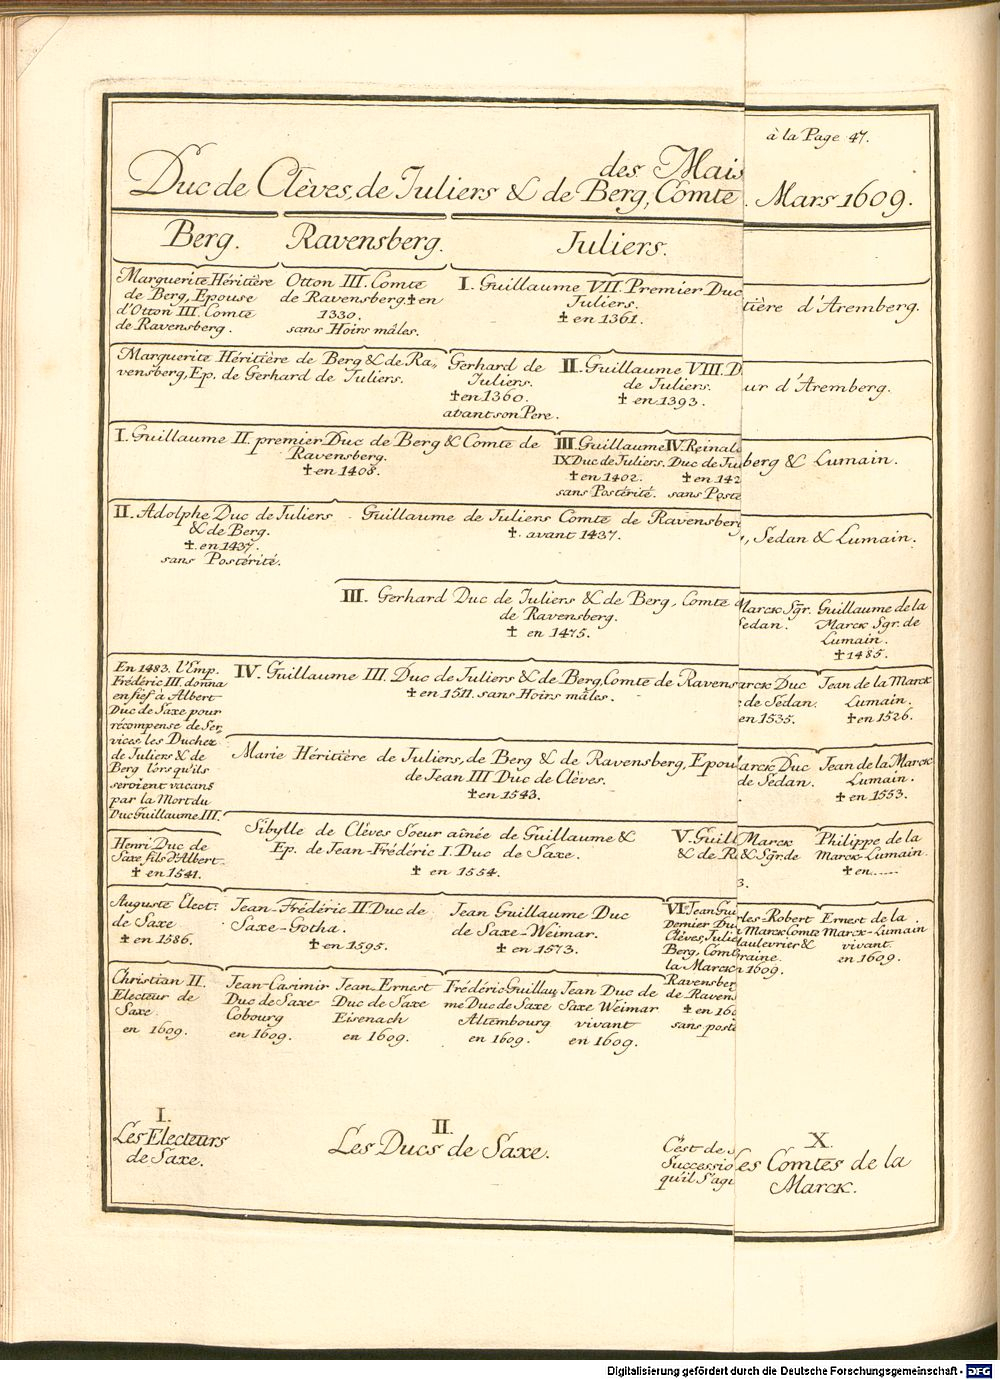 à la Page 47.
des Mais
Duc de Clèves, de Juliers & de Berg, Comte
. Mars 1609.
Berg.
Ravensberg.
Juliers.
Marguerite Héritière
de Berg, Epouse
d'Otton III. Comte
de Ravensberg.
Otton III. Comte
de Ravensberg ✝ en
1330.
sans Hoirs mâles.
I. Guillaume VII. Premier Duc
Juliers.
✝ en 1361.
tière d'Aremberg.
Marguerite Héritière de Berg & de Ra„
vensberg, Ep. de Gerhard de Juliers.
Gerhard de
Juliers.
✝ en 1360.
avant son Pere.
II. Guillaume VIII. D
de Juliers.
✝ en 1393.
ur d'Aremberg.
I. Guillaume II. premier Duc de Berg & Comte de
Ravensberg.
✝ en 1408.
III. Guillaume
IX Duc de Juliers.
✝ en 1402.
sans Postérité.
IV. Reinal
Duc de Ju
✝ en 142
sans Poste
berg & Lumain.
II. Adolphe Duc de Juliers
& de Berg.
✝ en 1437.
sans Postérité.
Guillaume de Juliers Comte de Ravensberg
✝. avant 1437.
, Sedan & Lumain.
III. Gerhard Duc de Juliers & de Berg, Comte d
de Ravensberg.
✝ en 1475.
Marck Sgr.
Sedan.
Guillaume de la
Marck Sgr. de
Lumain.
✝ 1485.
En 1483. l'Emp.
Frédéric III. donna
en fief à Albert
Duc de Saxe pour
récompense de Ser,
vices, les Duchez
de Juliers & de
Berg lorsqu'ils
seroient vacans
par la Mort du
Duc Guillaume III.
IV. Guillaume III. Duc de Juliers & de Berg, Comte de Ravens
✝ en 1511. sans Hoirs mâles.
arck Duc
de Sedan.
en 1535.
Jean de la Marck
Lumain.
✝ en 1526.
Marie Héritière de Juliers, de Berg & de Ravensberg, Epou
de Jean III Duc de Clèves.
✝ en 1543.
arck Duc
de Sedan.
Jean de la Marck
Lumain.
✝ en 1553.
Henri Duc de
Saxe fils d'Albert
✝ en 1541.
Sibylle de Clèves Soeur aînée de Guillaume &
Ep. de Jean-Frédéric I. Duc de Saxe.
✝ en 1554.
V. Guil
& de R
Marck
& Sgr. de
3.
Philippe de la
Marck-Lumain.
✝ en.......
Auguste Elect.
de Saxe
✝ en 1586.
Jean-Frédéric II. Duc de
Saxe-Gotha.
✝ en 1595.
Jean Guillaume Duc
de Saxe-Weimar.
✝ en 1573.
VI. Jean Gui
Dernier Du
Clèves, Julie
Berg, Comt
la Marck
Ravensber
de Raven
✝ en 160
sans posté
les-Robert
Marck Comte
aulevrier &
raine.
n 1609.
Ernest de la
Marck-Lumain
vivant
en 1609.
Christian II.
Electeur de
Saxe.
en 1609.
Jean-Casimir
Duc de Saxe
Cobourg
en 1609.
Jean-Ernest
Duc de Saxe
Eisenach
en 1609.
Frédéric-Guillau
me Duc de Saxe
Altembourg
en 1609.
Jean Duc de
Saxe Weimar
vivant
en 1609.
I.
Les Electeurs
de Saxe.
II.
Les Ducs de Saxe.
C'est de
Successio
qu'il s'agi
X.
es Comtes de la
Marck.
Digitalisierung gefördert durch die Deutsche Forschungsgemeinschaft - DFG